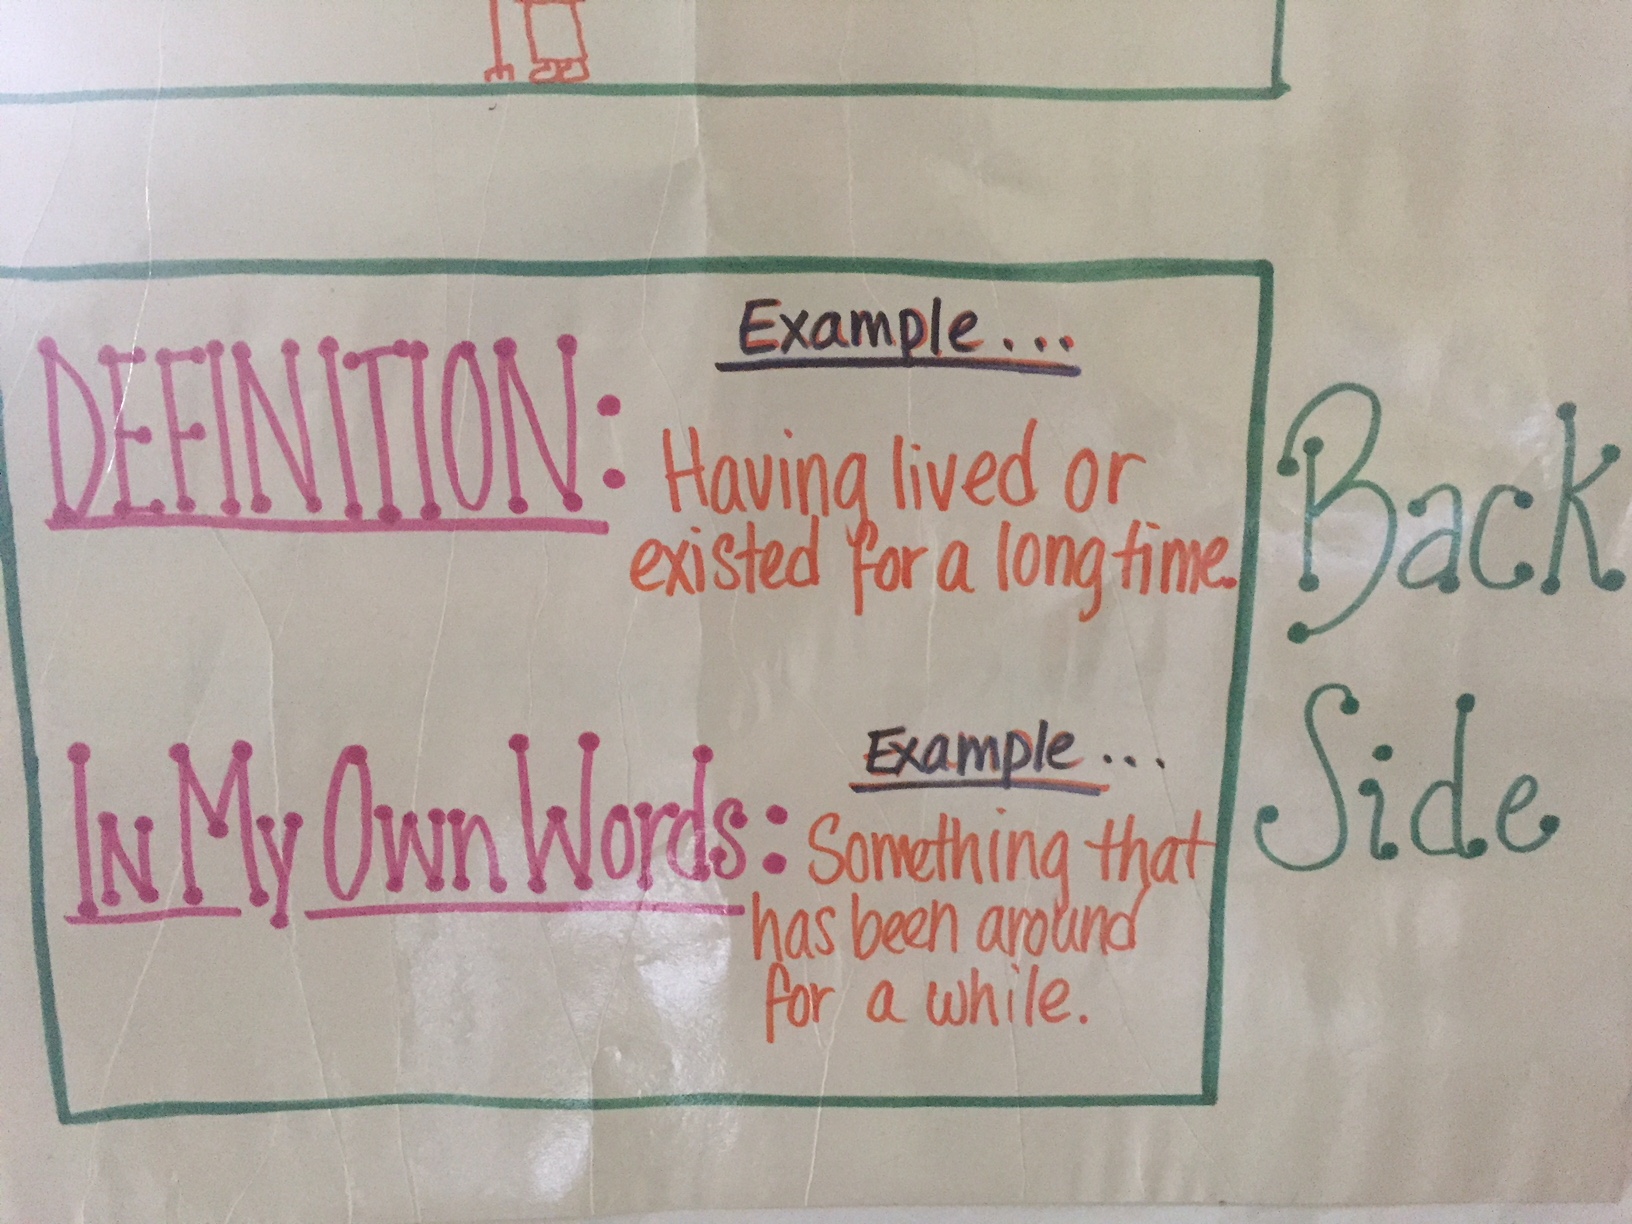 Example...
DEFINITION: Having lived or
existed for a long time.
Example...
In My Own Words: Something that
has been around
for a while.
Back
Side